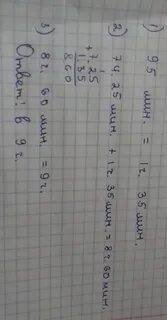 1) 95 мин. = 1ч. 35 мин.
2) 7ч. 25 мин. + 1ч. 35 мин. = 8ч. 60 мин.
+7.25
1.35
8 60
3) 8ч. 60 мин. = 9ч.
Ответ: в 9 ч.